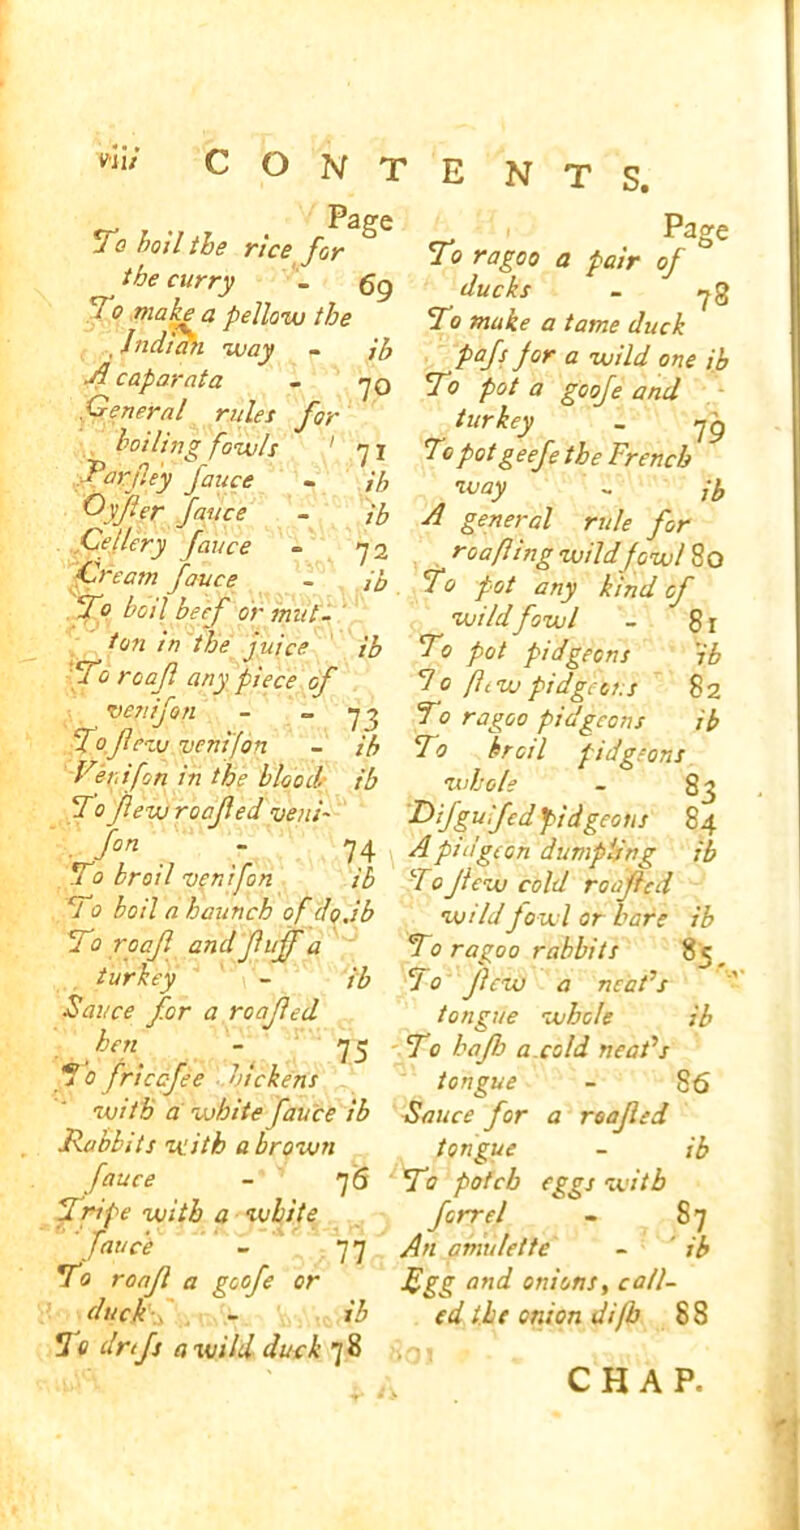 viii CONTENTS.
Page
To boil the rice for
the curry - 69
To make a pellow the
Indian way - ib
A caparata - 70
General rules for
boiling fowls 71
Parſley ſauce - ib
Oyſter ſauce - ib
Cellery ſauce - 72
Cream ſauce - ib
To boil beef or mut-
ton in the juice ib
To roaſt any piece of
veniſon - - 73
To ſtew veniſon - ib
Veniſon in the blood ib
To ſtew roaſted veni-
ſon - 74
To broil veniſon ib
To boil a haunch of do. ib
To roaſt and ſtuff a
turkey - ib
Sauce for a roaſted
hen - 75
To fricaſee hickens
with a white ſauce ib
Rabbits with a brown
ſauce - 76
Tripe with a white
ſauce - 77
To roaſt a gooſe or
duck - ib
To dreſs a wild duck 78
Page
To ragoo a pair of
ducks - 78
To make a tame duck
paſs for a wild one ib
To pot a gooſe and
turkey - 79
To pot geeſe the French
way - ib
A general rule for
roaſting wild fowl 80
To pot any kind of
wild fowl - 81
To pot pidgeons ib
To ſtew pidgeons 82
To ragoo pidgeons ib
To broil pidgeons
whole - 83
Diſguiſed pidgeons 84
A pidgeon dumpling ib
To ſtew cold roaſted
wild fowl or hare ib
To ragoo rabbits 85
To ſtew a neat's
tongue whole ib
To haſh a cold neat's
tongue - 86
Sauce for a roaſted
tongue - ib
To potch eggs with
ſorrel - 87
An amulette - ib
Egg and onions, call-
ed the onion diſh 88
CHAP.